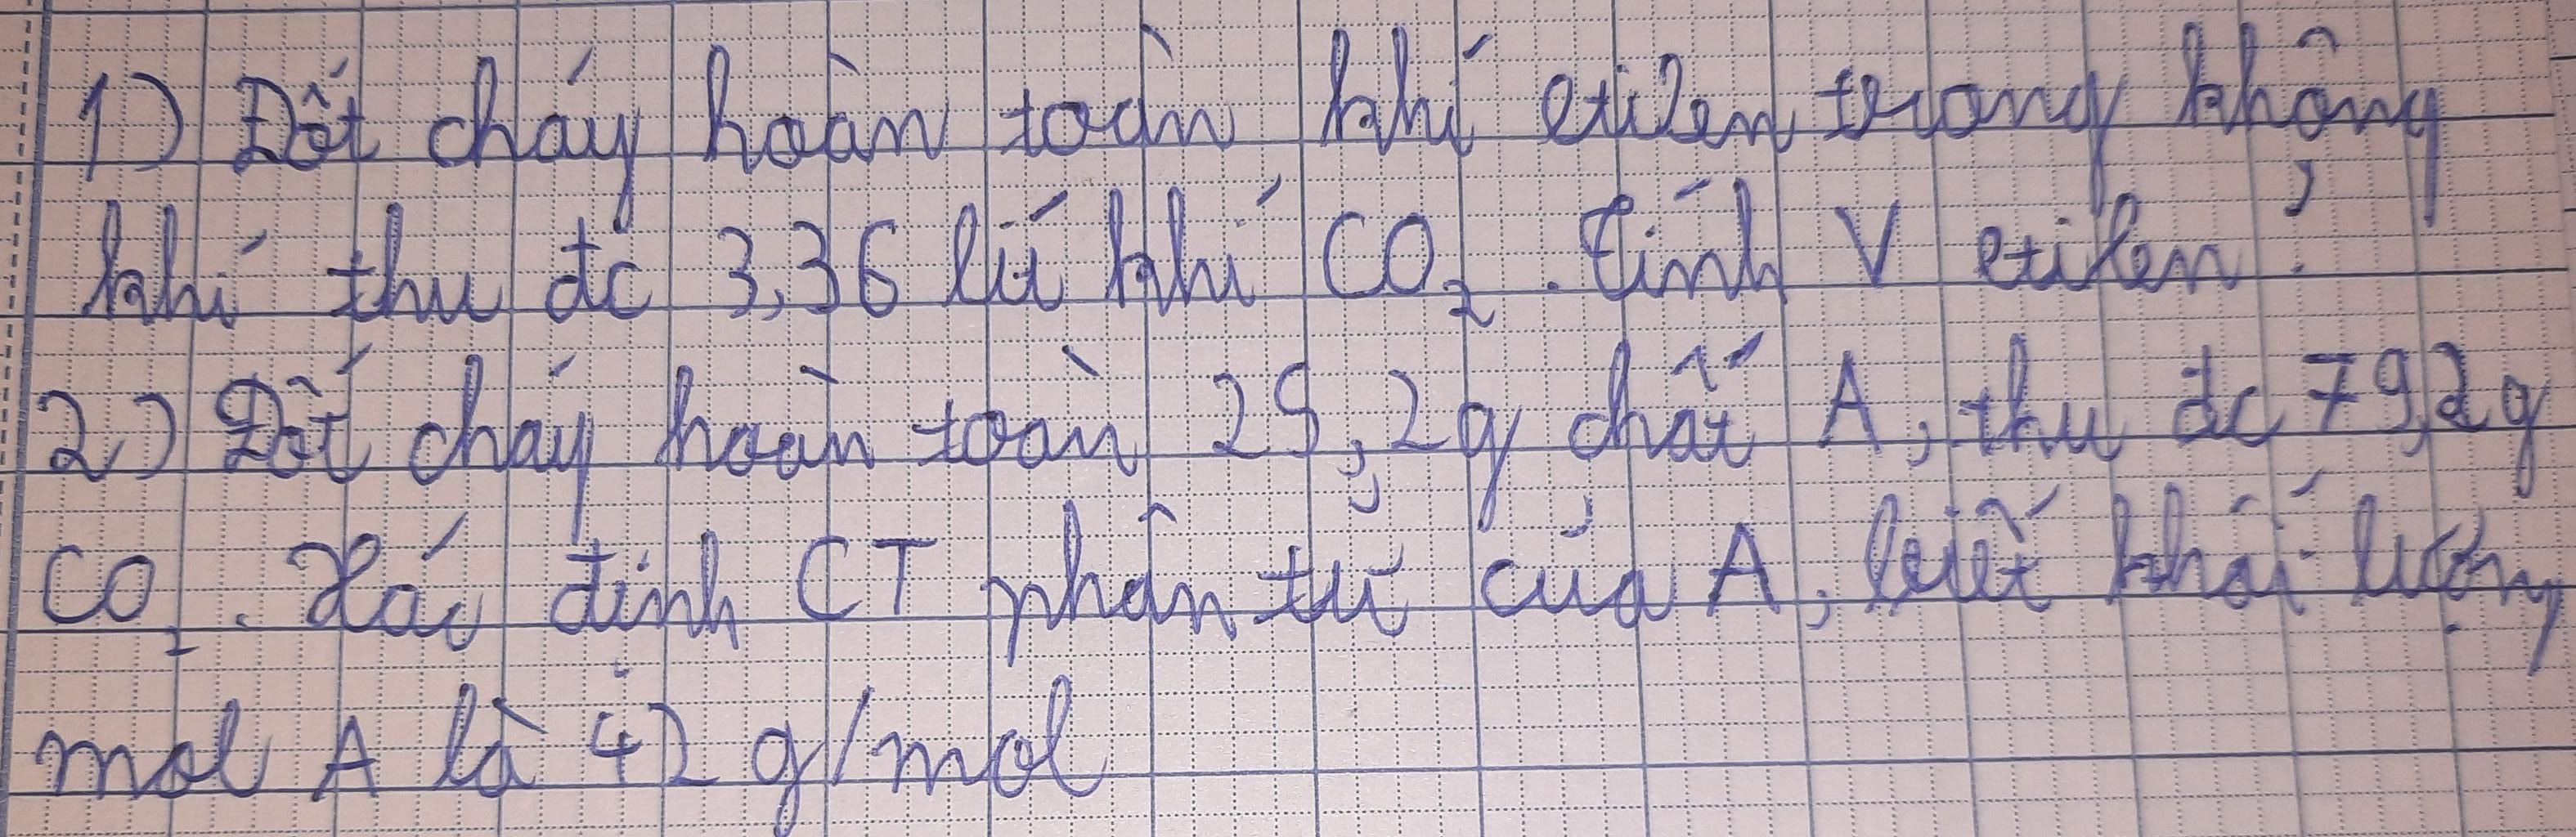 1) Đốt cháy hoàn toàn khí etilen trong không
khí thu đc 3,36 lít khí CO₂. Tính V etilen?
2) Đốt cháy hoàn toàn 25,2g chất A, thu đc 79,2g
CO₂. Xác định CT phân tử của A, biết khối lượng
mol A là 42 g/mol